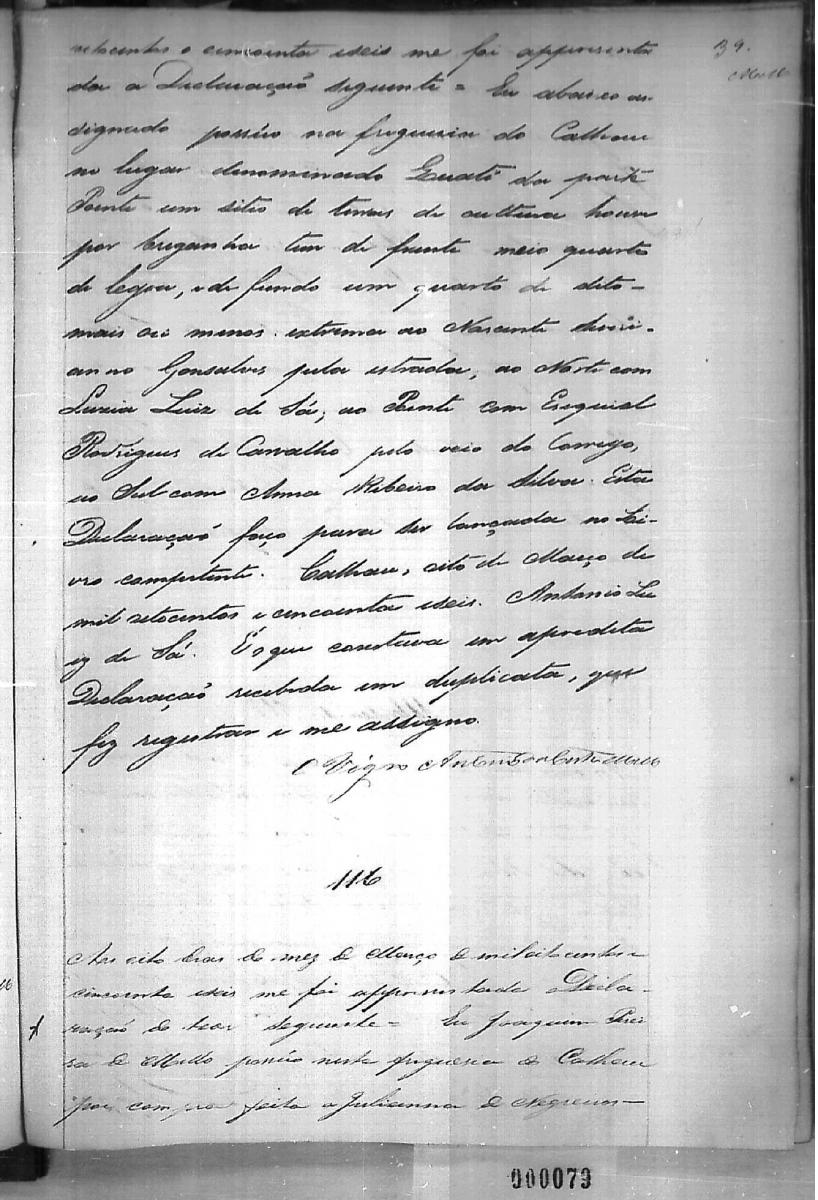 39.
Mello
oitocentos e cincoenta e seis me foi appresenta
da a Declaração seguinte = Eu abaixo as
signado possúo na freguesia do Calhau
no lugar denominado da parte
Poente um sitio de terras de cultura houve
por breganha tem de frente meio quarto
de legoa, e de fundo um quarto de dito-
mais ou menos. extrema ao Nascente
anno Gonsalves pela estrada, ao Norte com
Luzia Luiz de Sá; ao Poente com Esequiel
Rodrigues de Carvalho pelo veio do Corrego,
ao Sul com Anna Ribeiro da Silva. Esta
Declaração faço para ser lançada no Li-
vro competente. Calhau, oito de Março de
mil oitocentos e cincoenta e seis. Antonio Lu
iz de Sá. É o que constava em a predita
Declaração recebida em duplicata, que
fiz registrar e me assigno.
O Vigro Antonio da Costa Mello
116
Aos oito dias do mez de Março de mil oito centos e
cincoenta e seis me foi appresentada Decla-
ração do teor seguinte = Eu Joaquim Perei
ra de Mello possúo nesta freguesia do Calhau
por compra feita a Julianna de Negreiros-
000079